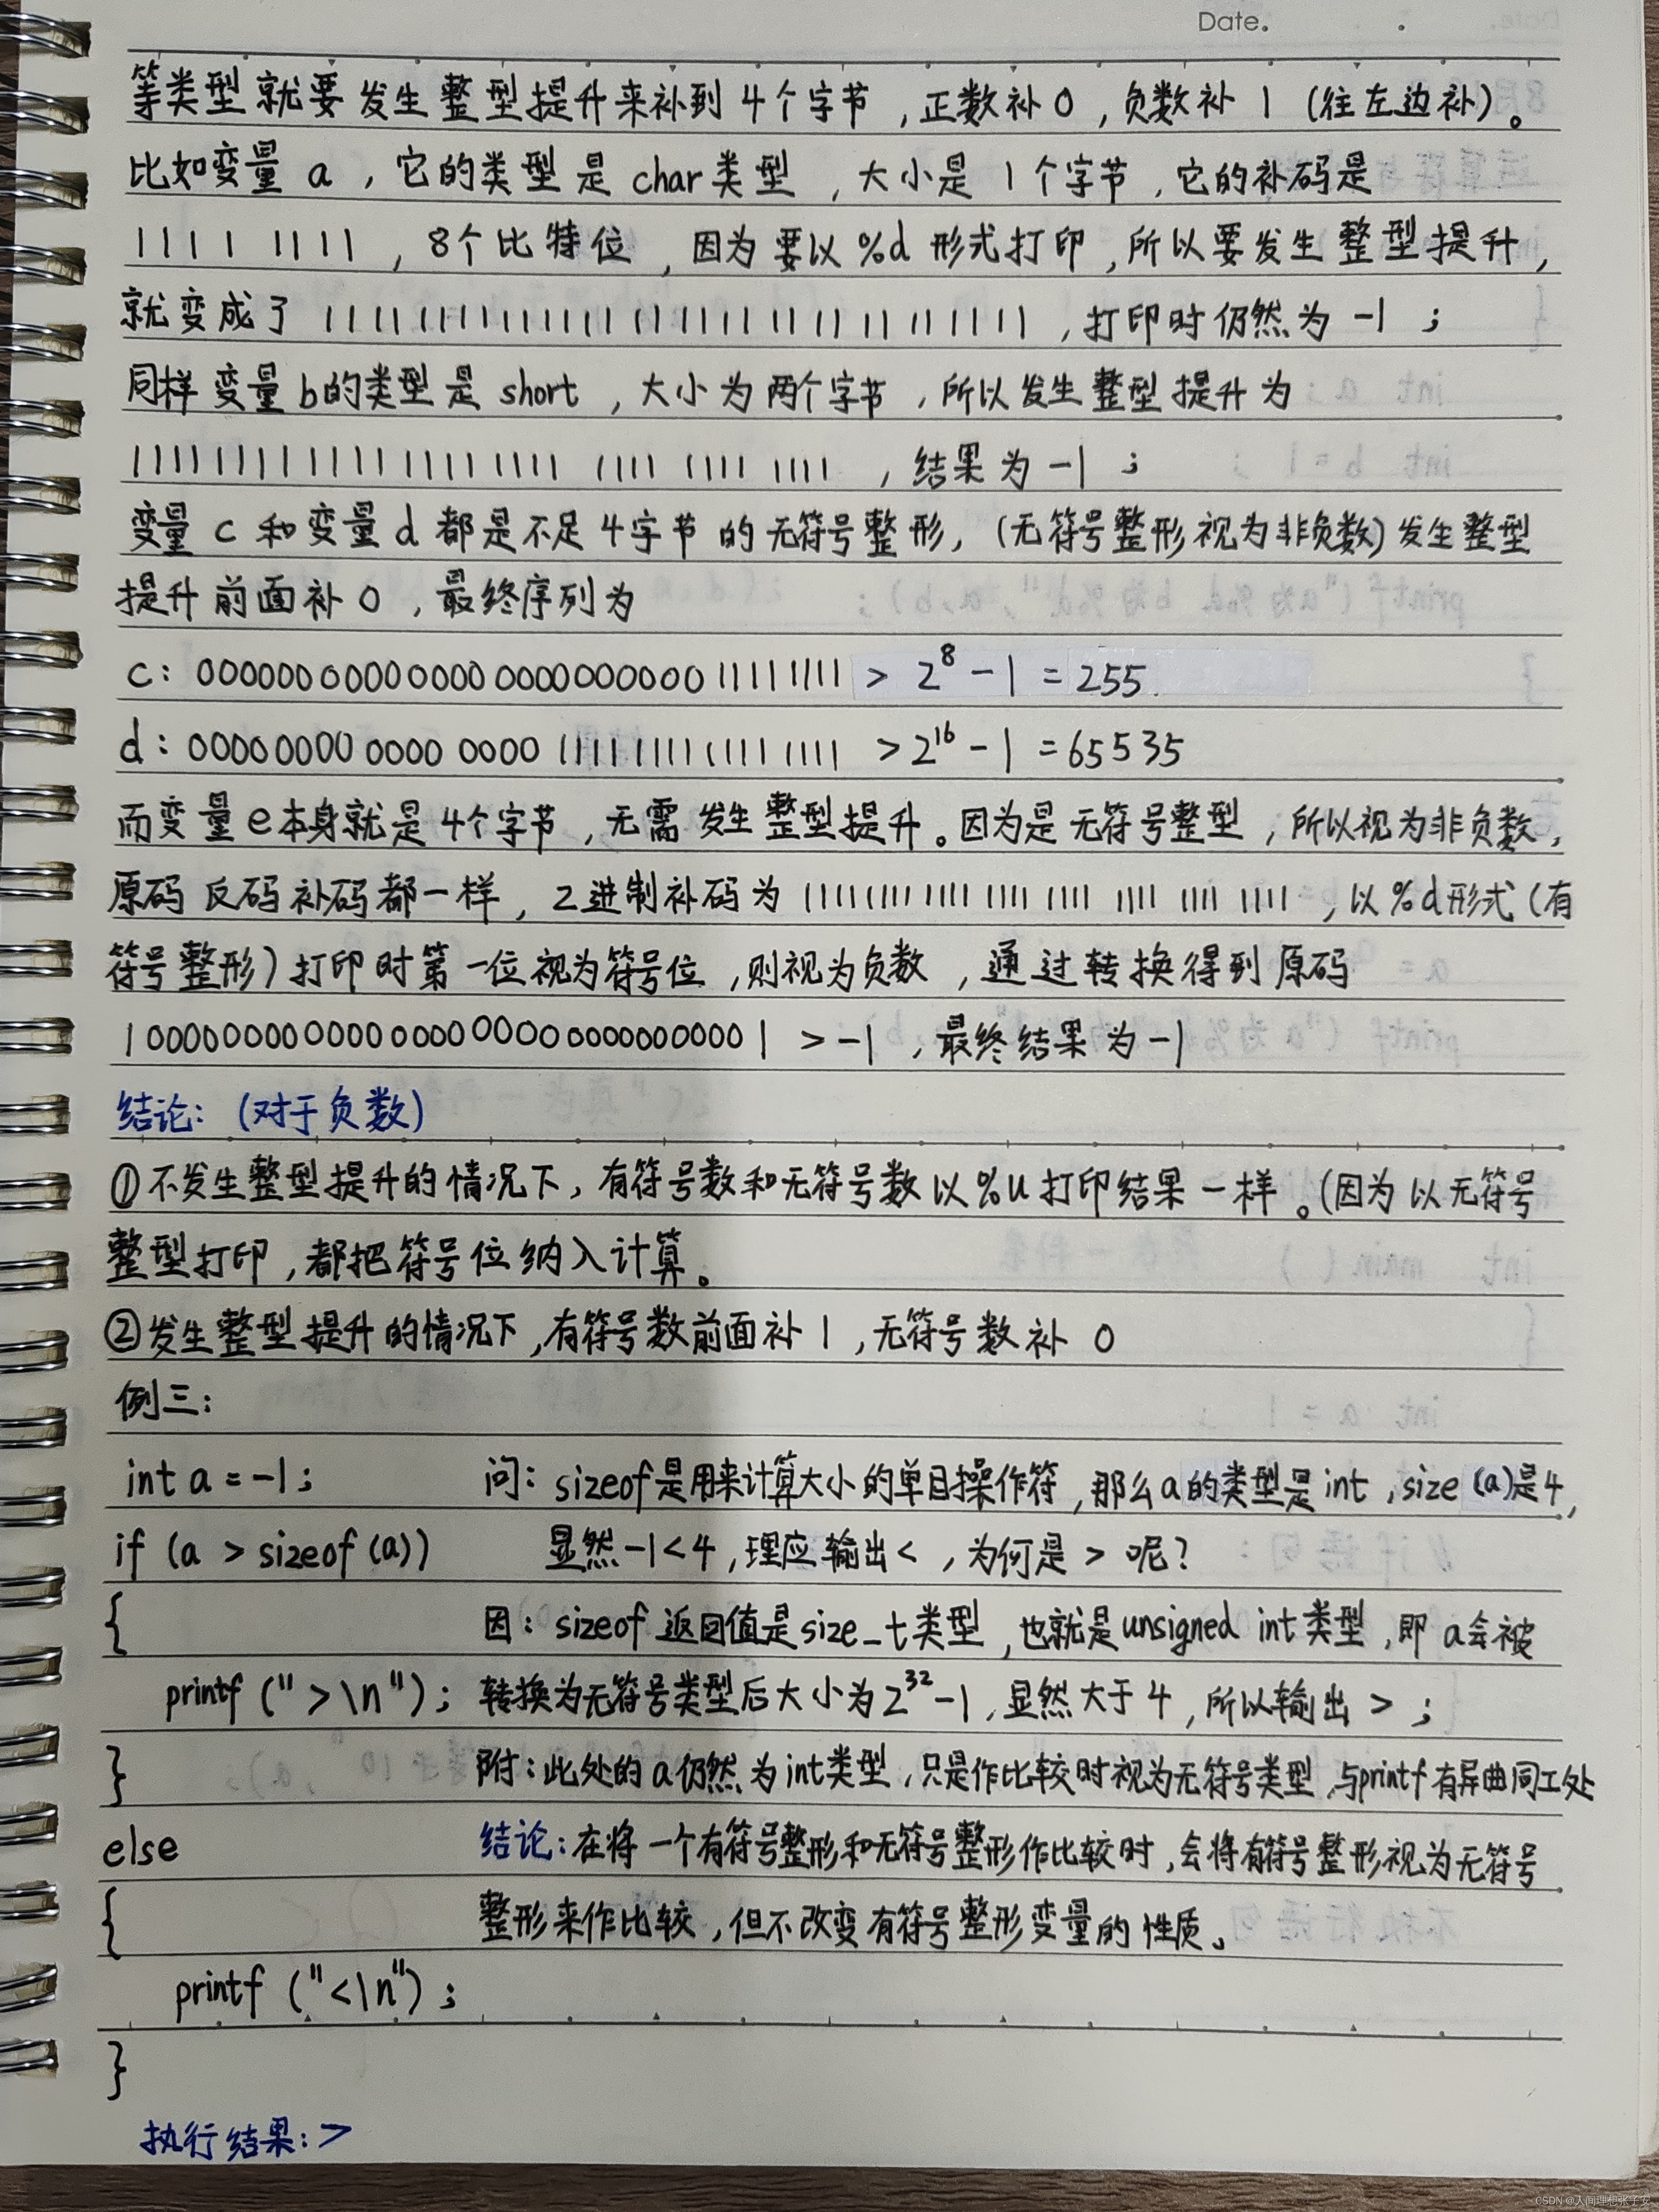 Date.
等类型就要发生整型提升来补到4个字节,正数补0,负数补1(往左边补)。
比如变量a,它的类型是char类型,大小是1个字节,它的补码是
1111 1111,8个比特位,因为要以%d形式打印,所以要发生整型提升,
就变成了11111111111111111111111111111111,打印时仍然为-1;
同样变量b的类型是short,大小为两个字节,所以发生整型提升为
11111111111111111111 1111 1111 1111,结果为-1;
变量c和变量d都是不足4字节的无符号整形,(无符号整形视为非负数)发生整型
提升前面补0,最终序列为
c:00000000000000000000000011111111 > 2^8-1=255
d:00000000 0000 0000 111111111111 1111 >2^16-1=65535
而变量e本身就是4个字节,无需发生整型提升。因为是无符号整型,所以视为非负数,
原码反码补码都一样,2进制补码为11111111 1111 1111 1111 1111 1111 1111,以%d形式(有
符号整形)打印时第一位视为符号位,则视为负数,通过转换得到原码
10000000000000000000000000000001 >-1,最终结果为-1
结论:(对于负数)
①不发生整型提升的情况下,有符号数和无符号数以%u打印结果一样。(因为以无符号
整型打印,都把符号位纳入计算。
②发生整型提升的情况下,有符号数前面补1,无符号数补0
例三:
int a=-1; 问:sizeof是用来计算大小的单目操作符,那么a的类型是int,size(a)是4,
if (a > sizeof(a)) 显然-1<4,理应输出<,为何是>呢?
{ 因:sizeof返回值是size_t类型,也就是unsigned int类型,即a会被
printf(">\n"); 转换为无符号类型后大小为2^32-1,显然大于4,所以输出>;
} 附:此处的a仍然为int类型,只是作比较时视为无符号类型,与printf有异曲同工处
else 结论:在将一个有符号整形和无符号整形作比较时,会将有符号整形视为无符号
{ 整形来作比较,但不改变有符号整形变量的性质。
printf("<\n");
}
执行结果:>
CSDN @人间理想张子安